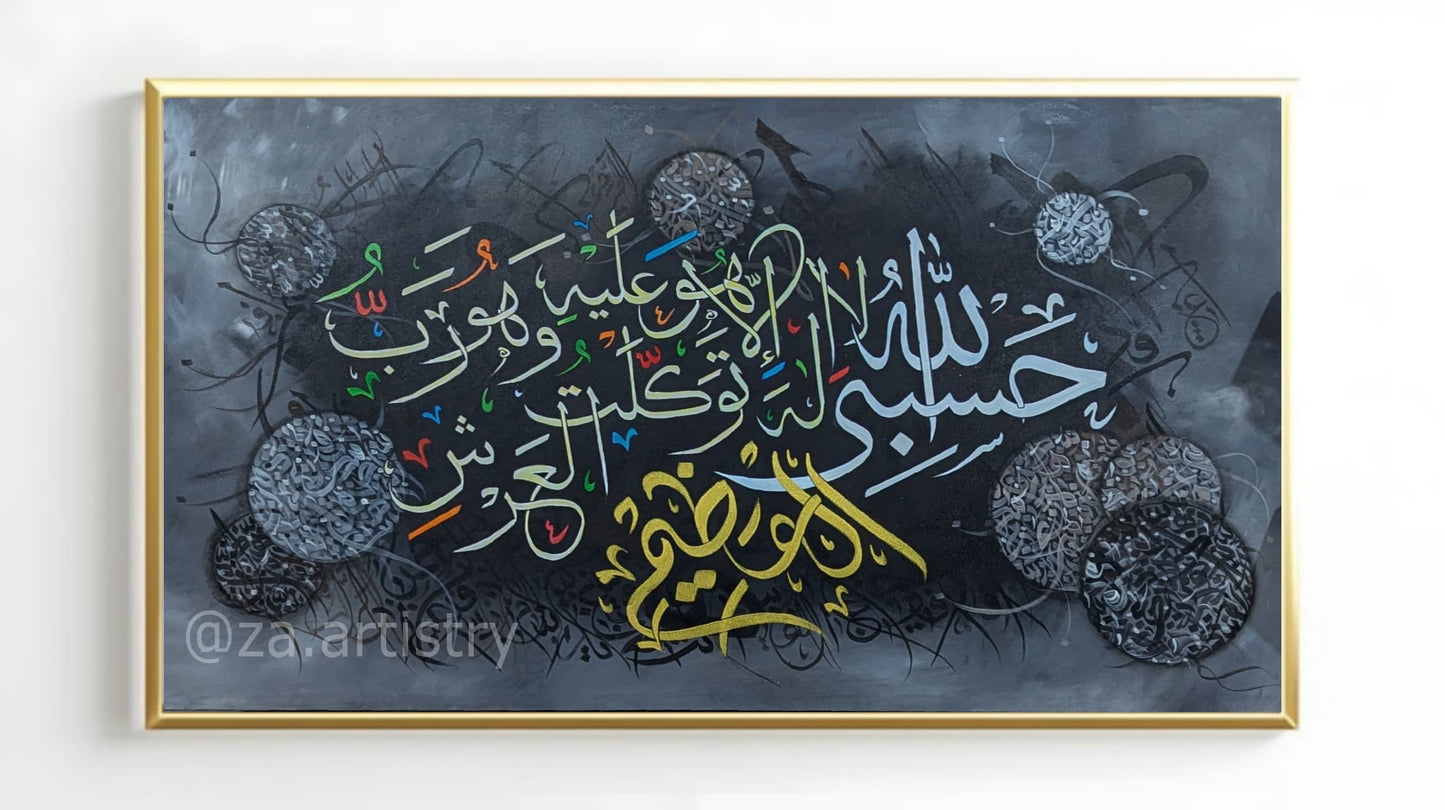 حَسْبِيَ اللّٰهُ
لَا إِلٰهَ إِلَّا هُوَ عَلَيْهِ
تَوَكَّلْتُ وَهُوَ رَبُّ
الْعَرْشِ
الْعَظِيمِ
@za.artistry